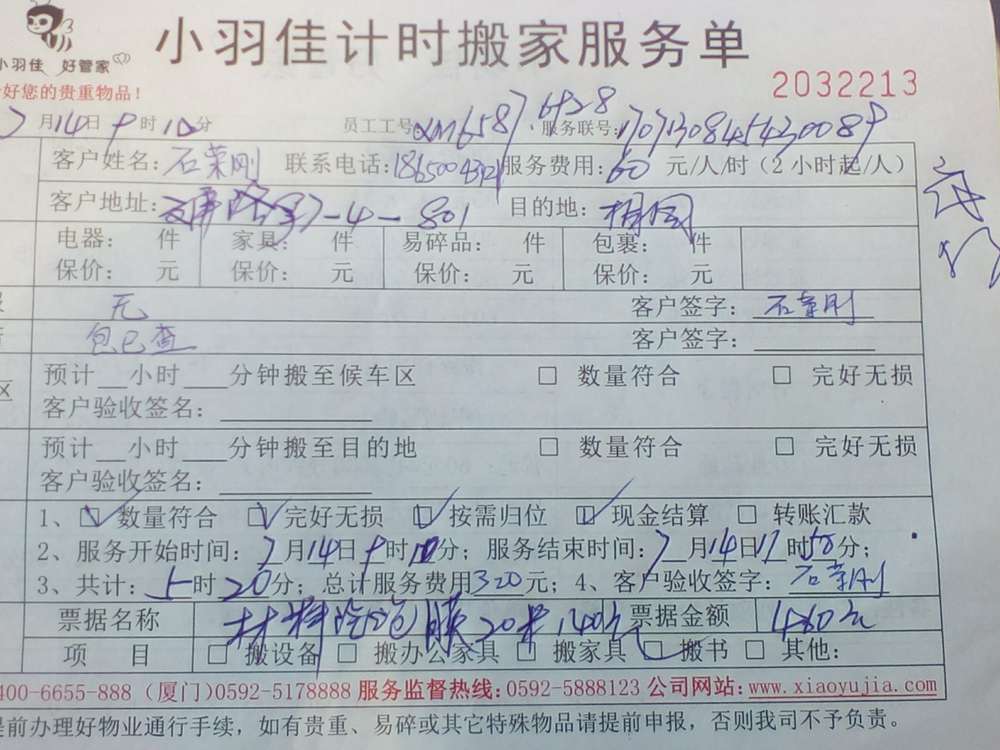 小羽佳计时搬家服务单
小羽佳 好管家
好您的贵重物品！
2032213
7月14日9时10分 员工工号 XM6587 6928 服务联号：
客户姓名：石荣刚 联系电话：服务费用：60元/人/时（2小时起/人）
客户地址：7-4-801 目的地：相同
电器： 件 家具： 件 易碎品： 件 包裹： 件
保价： 元 保价： 元 保价： 元 保价： 元
无 客户签字：石荣刚
包已查 客户签字：
区 预计__小时___分钟搬至候车区 □ 数量符合 □ 完好无损
客户验收签名：
预计__小时___分钟搬至目的地 □ 数量符合 □ 完好无损
客户验收签名：
1、☑数量符合 ☑完好无损 ☑按需归位 ☑现金结算 □ 转账汇款
2、服务开始时间：7月14日9时10分；服务结束时间：7月14日17时50分；
3、共计：5时20分；总计服务费用320元；4、客户验收签字：石荣刚
票据名称 材料 膜20米140元 票据金额 460元
项 目 □ 搬设备 □ 搬办公家具 □ 搬家具 □ 搬书 □ 其他：
400-6655-888（厦门）0592-5178888 服务监督热线：0592-5888123 公司网站：www.xiaoyujia.com
提前办理好物业通行手续，如有贵重、易碎或其它特殊物品请提前申报，否则我司不予负责。